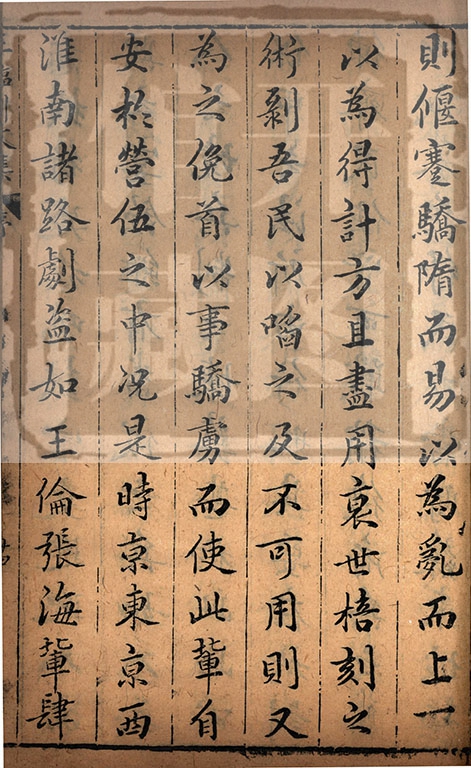 則偃蹇驕隋而易以為亂而上一
以為得計方且盡用衰世掊刻之
術剝吾民以啗之及不可用則又
為之俛首以事驕虜而使此輩自
安於營伍之中况是時京東京西
淮南諸路劇盗如王倫張海輩肆